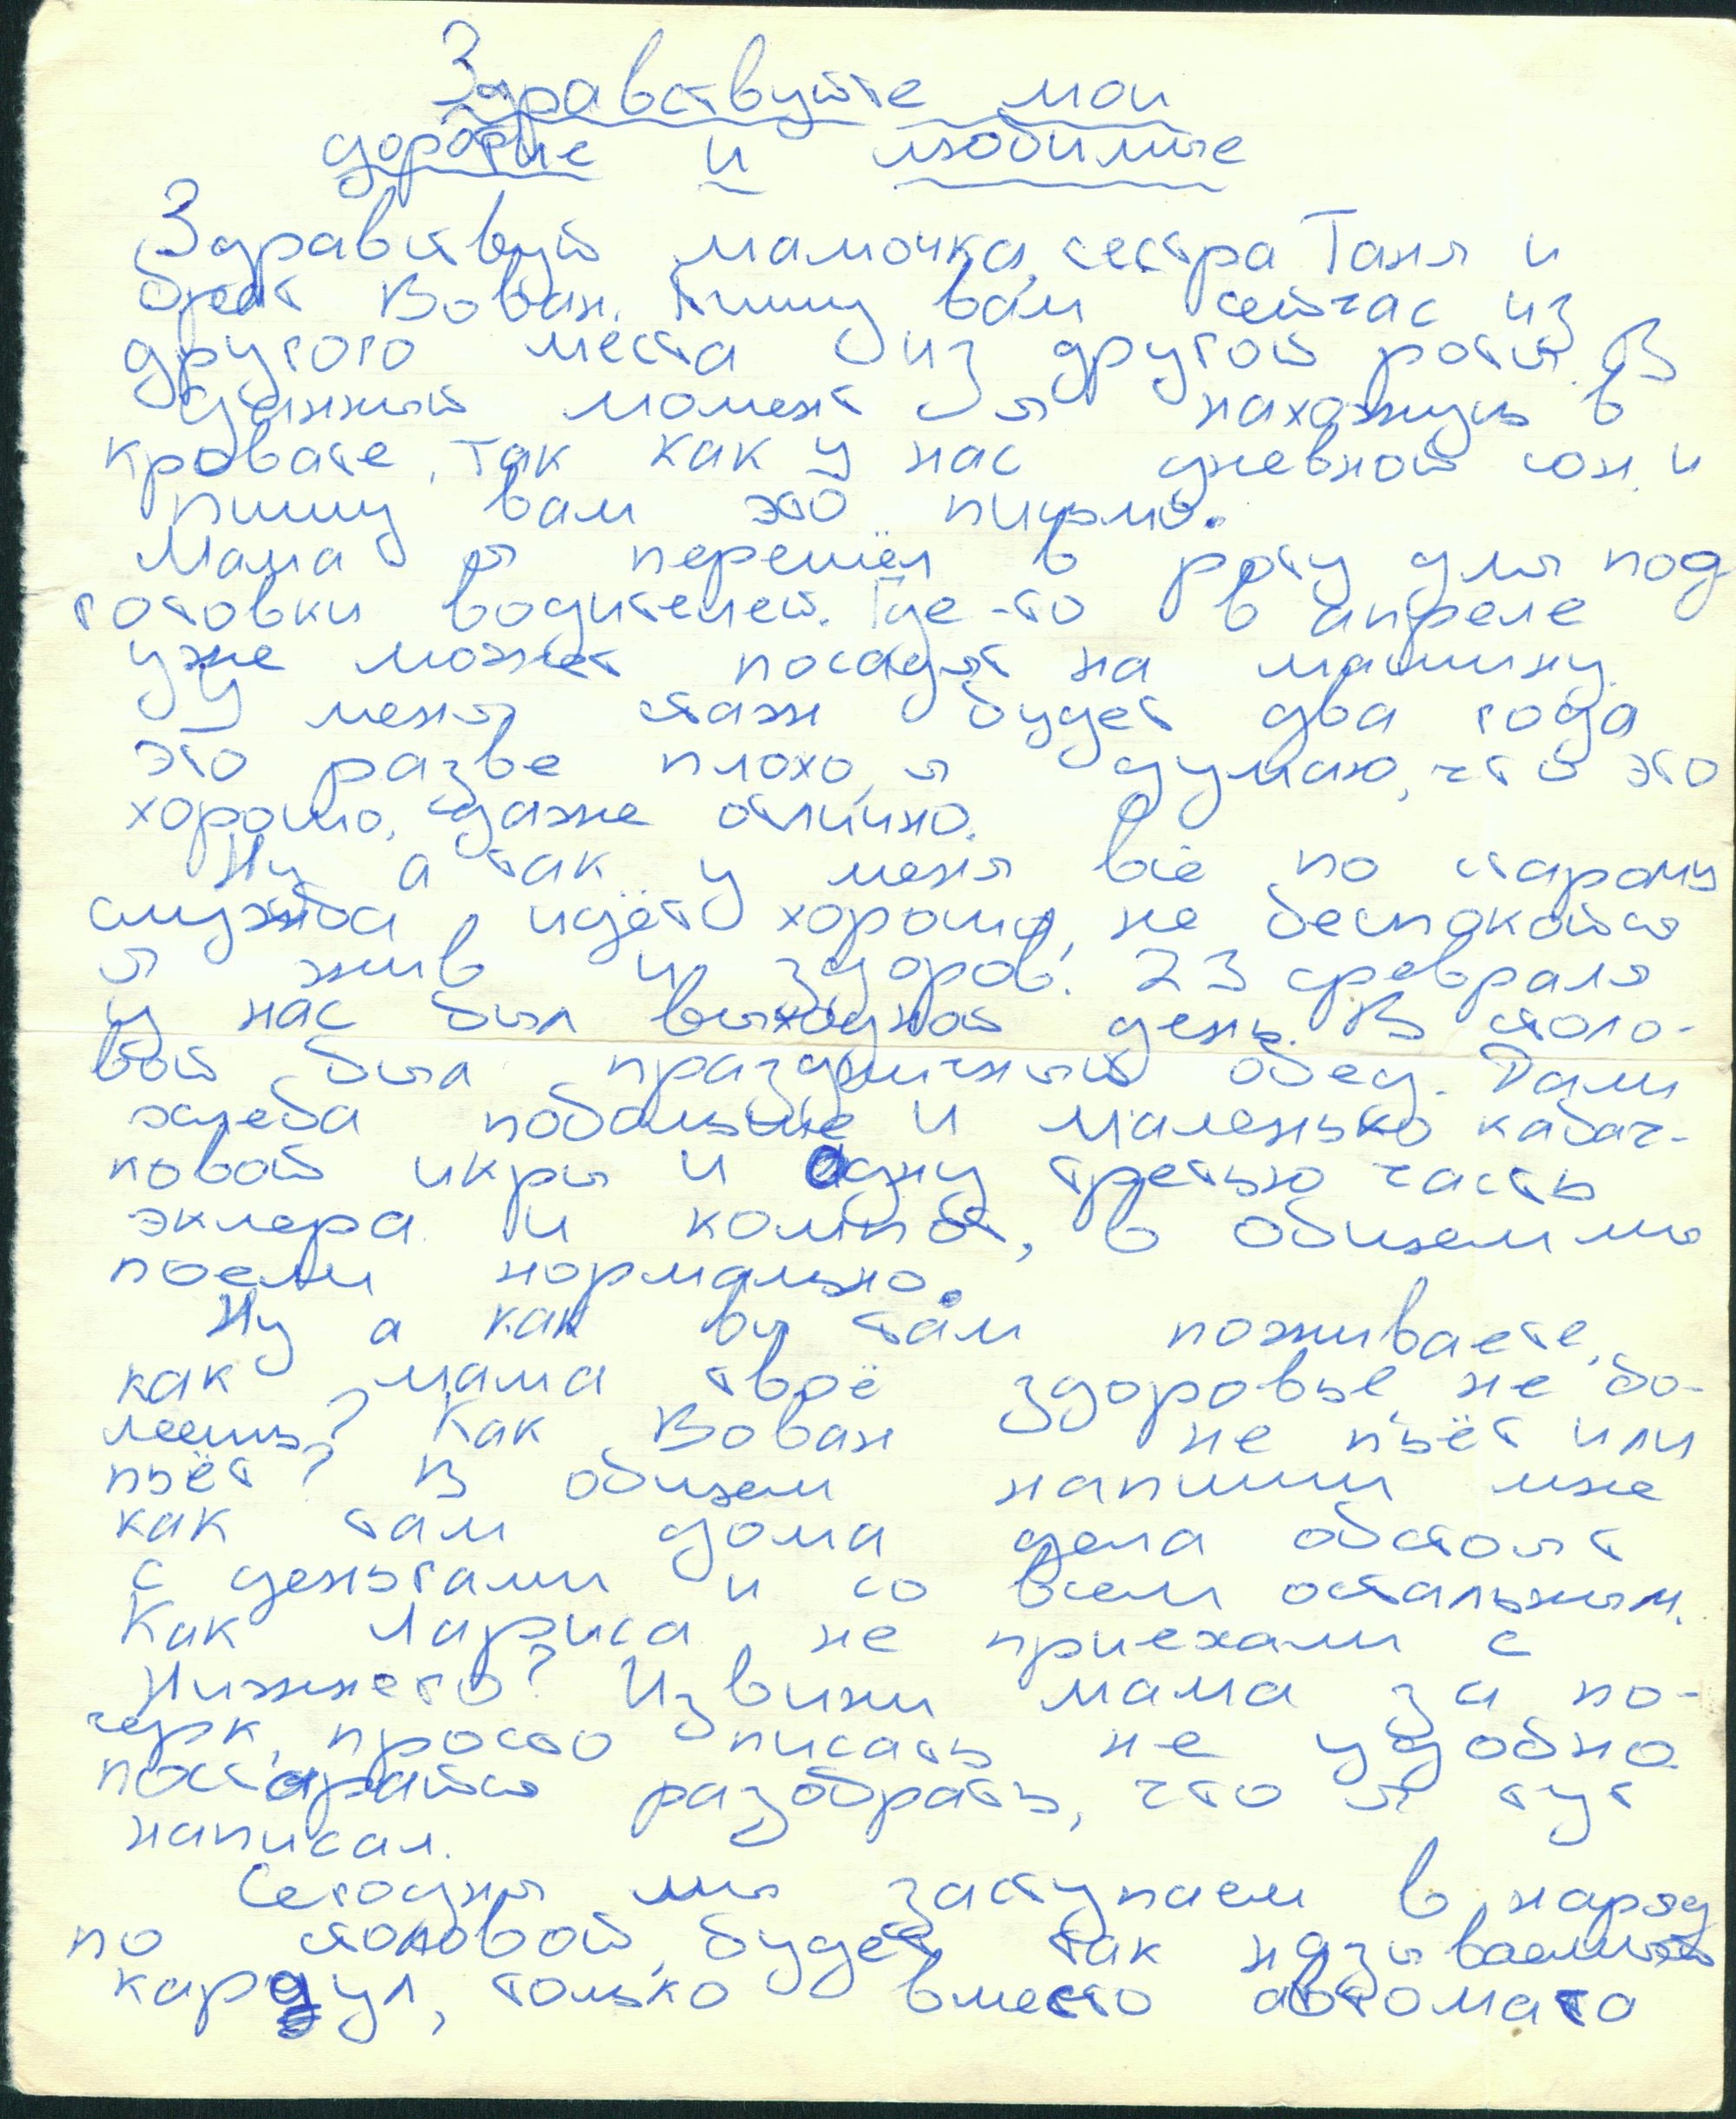 Здравствуйте мои
дорогие и любимые
Здравствуй мамочка, сестра Таня и
брат Вован. Пишу вам сейчас из
другого места из другой роты. В
данный момент я нахожусь в
кровате, так как у нас дневной сон и
пишу вам это письмо.
Мама я перешёл в роту для под
готовки водителей. Где-то в апреле
уже может посадят на машину.
У меня стаж будет два года
это разве плохо, я думаю, что это
хорошо, даже отлично.
Ну а так у меня всё по старому
служба идёт хорошо, не беспокойся
я жив и здоров. 23 февраля
у нас был выходной день. В столо-
вой был праздничный обед. Дали
хлеба побольше и маленько кабач-
ковой икры и одну третью часть
эклера и компот, в общем мы
поели нормально.
Ну а как вы там поживаете,
как мама твоё здоровье, не бо-
леешь? Как Вован не пьёт или
пьёт? В общем напиши мне
как там дома дела обстоят
с деньгами и со всем остальным.
Как Лариса, не приехали с
Нижнего? Извини мама за по-
черк, просто писать не удобно
постарайся разобрать, что я тут
написал.
Сегодня мы заступаем в наряд
по столовой, будет так называемый
караул, только вместо автомата